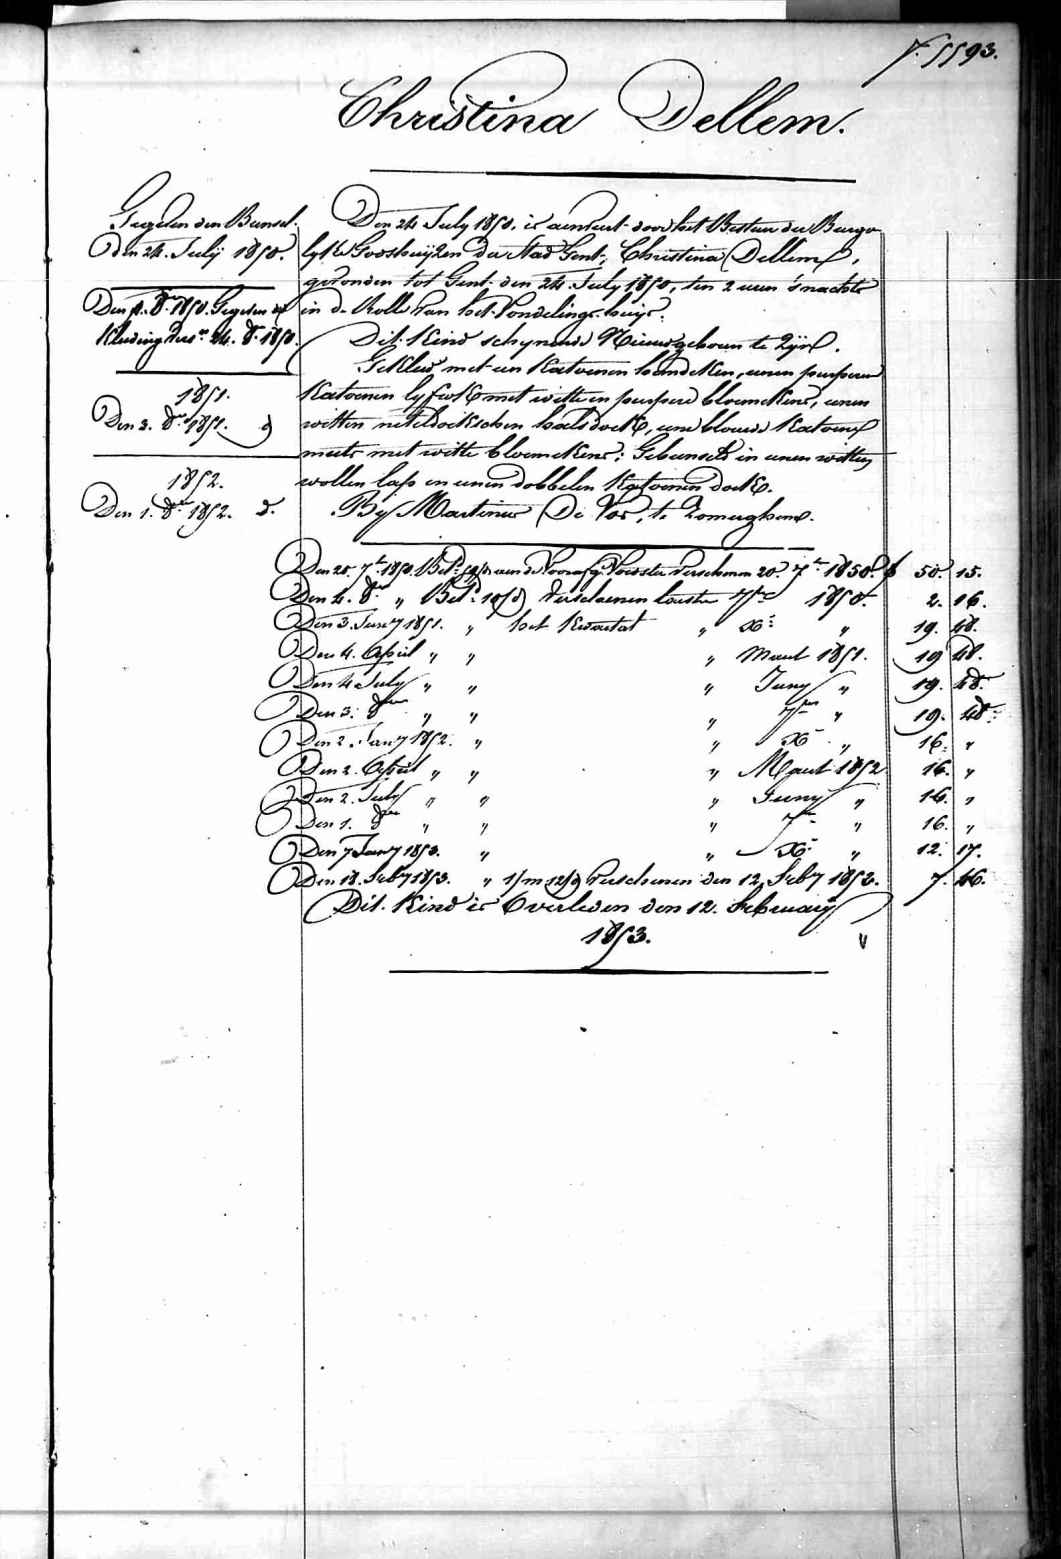 F. 5593.
Christina Dellem.
Gegeven den Bunsel.
Den 24. July 1850.
Den 4. 8.r 1850. Gegeven de
Kleeding 24. 8. 1850.
1851.
Den 3. 8.r 1851. d
1852.
Den 1. 8.r 1852. d.
Den 24 July 1850, is aenveert door het Bestuer der Burger-
lyke Godshuyzen der Stad Gent, Christina Dellem,
gevonden tot Gent den 24 July 1850, ten 2 uren 's nachts
in de Rolle van het Vondelings huys.
Dit Kind schynende Nieuwgeboren te Zyn.
Gekleed met een Katoenen hemdeken, eenen purperen
Katoenen lyfrok met witte en purpere bloemekens, eenen
witten neteldoekschen halsdoek, eene blouwe Katoene
muts met witte bloemekens: Gebunseld in eenen witten
wollen lap en eenen dobbelen Katoenen doek.
By Martinus De Vos, te Zomerghem.
Den 20. 7.r 1850. Bet. aen de Voorzg. Voedster verschenen 20. 7.r 1850. f 50. 15.
Den 4. 8.r " Bet. 10/d verschenen laesten 7.r 1850. 2. 16.
Den 3. Jany 1851. " het Kwartal " X.r " 19. 48.
Den 4. April " " " Maert 1851. 19 48.
Den 4 July " " " Juny " 19. 48.
Den 3. 8.r " " " 7.r " 19. 48.
Den 2. Jany 1852. " " X.r " 16. "
Den 2. April " " " Maert 1852 16. "
Den 2. July " " " Juny " 16. "
Den 1. 8.r " " " 7.r " 16. "
Den 7 Jany 1853. " " X.r " 12. 17.
Den 18. Feby 1853. " 1/m 12/d verschenen den 12 Feby 1853. 7. 46.
Dit Kind is Overleden den 12. February
1853.